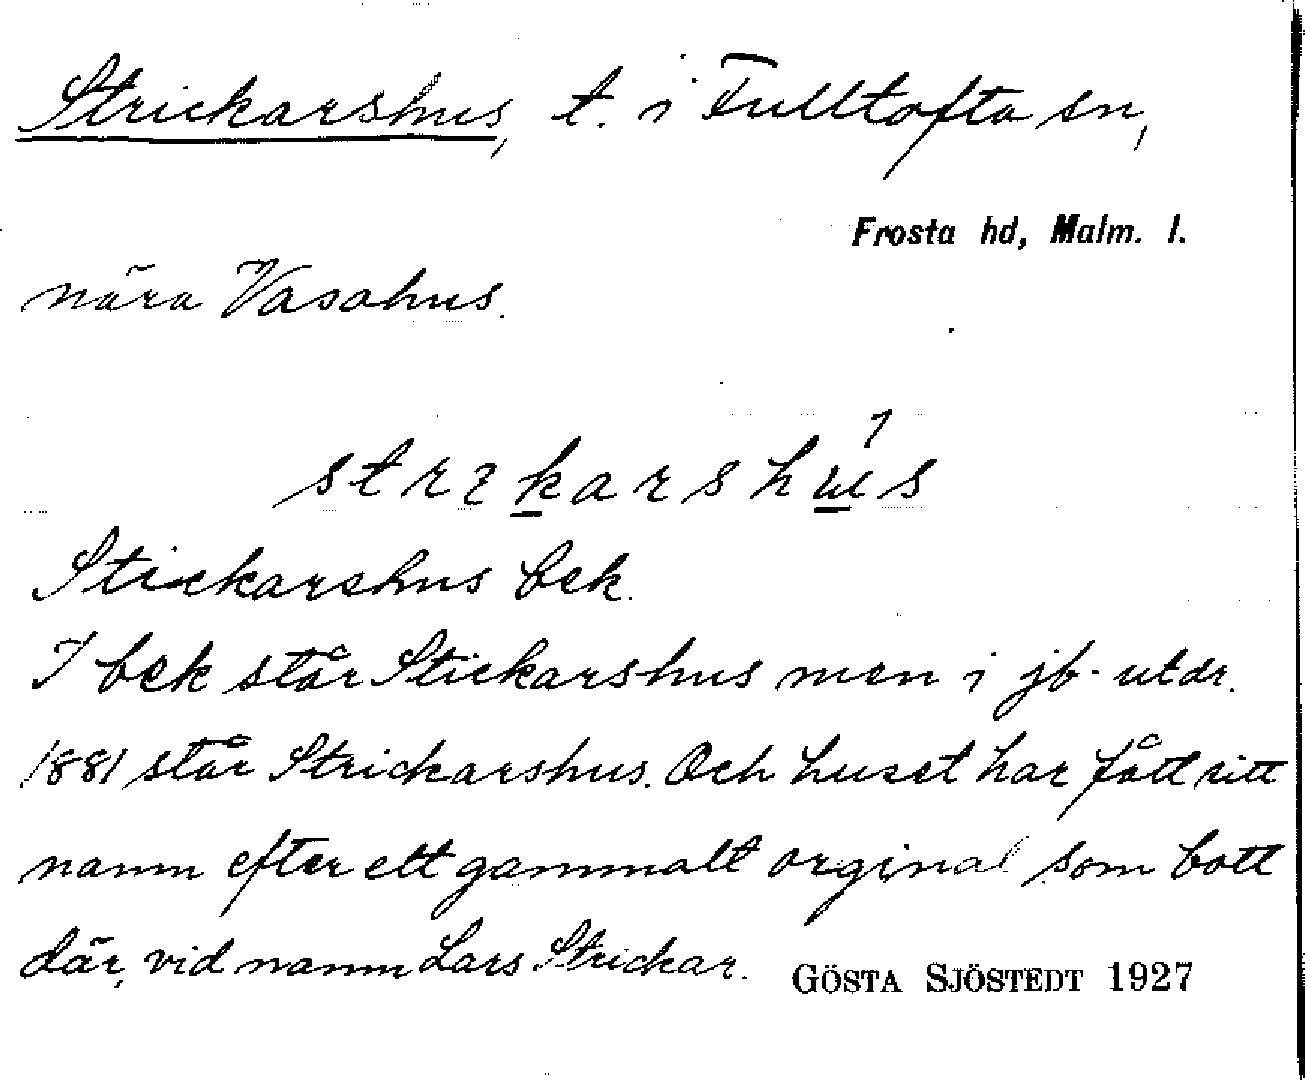 Strickarshus, t. i Fulltofta sn,
Frosta hd, Malm. l.
nära Vasahus.
strɩkarshus
Stickarshus bek.
I bek står Stickarshus men i jb. utdr.
1881 står Strickarshus. Och huset har fått sitt
namn efter ett gammalt orginal som bott
där, vid namn Lars Strickar.
GÖSTA SJÖSTEDT 1927